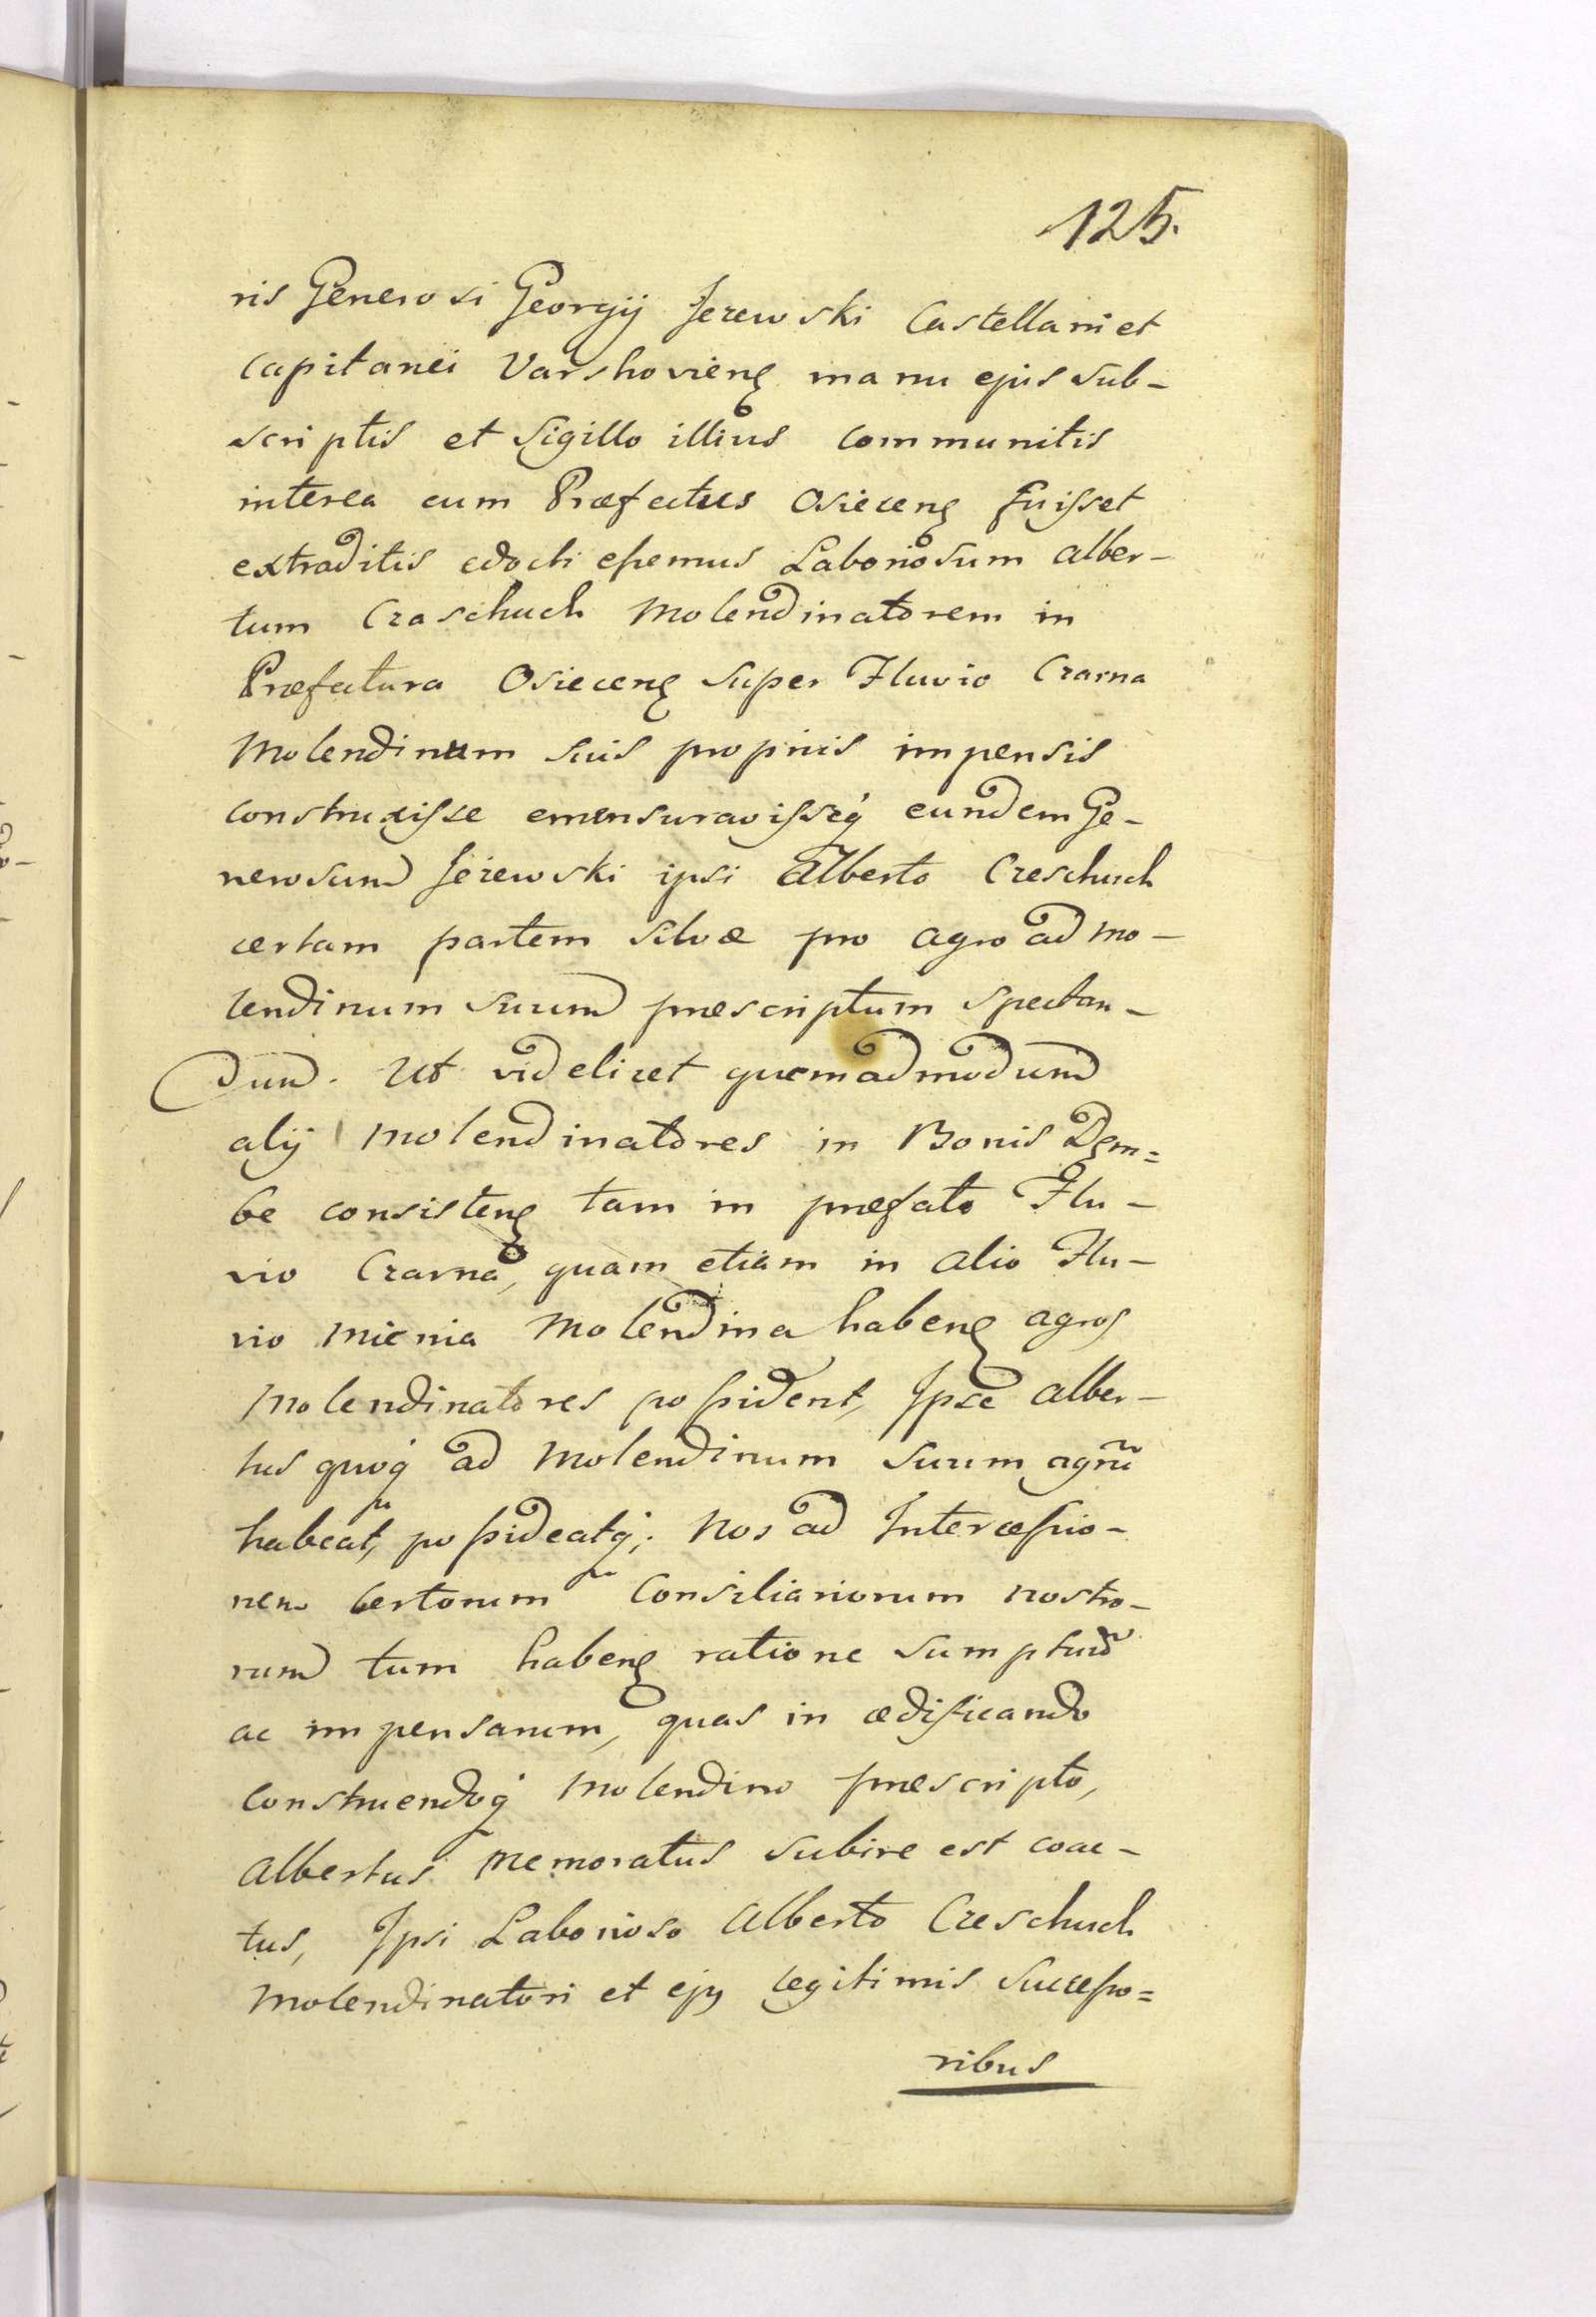 125.
ris Generosi Georgij Jezewski Castellani et
Capitanei Varshovieng manu ejus sub-
scriptis et Sigillo illius communitis
interea cum Præfectus Osieceng fuisset
extraditis edocti essemus Laboriosum Alber-
tum Craschuch Molendinatorem in
Præfectura Osieceng super Fluvio Czarna
Molendinum suis propriis impensis
construxisse emensuravisseq́ eundem Ge-
nerosum Jezewski ipsi Alberto Creschuch
certam partem silvæ pro agro ad mo-
lendinum suum præscriptum spectan-
dum. Ut videlicet quemadmodum
alij molendinatores in Bonis Dem=
be consisteng tam in præfato Flu-
vio Czarna, quam etiam in alio Flu-
vio Mienia Molendina habeng agros
Molendinatores possident, Ipse Alber-
tus quoq́ ad Molendinum suum agrũ
habeat, possideatq́; Nos ad Intercessio-
nem certorum Consiliariorum nostro-
rum tum habeng ratione sumptuũ
ac impensarum, quas in ædificando
construendoq́ Molendino præscripto,
Albertus memoratus subire est coac-
tus, Ipsi Laborioso Alberto Creschuch
Molendinatori et ejus legitimis Successo=
ribus